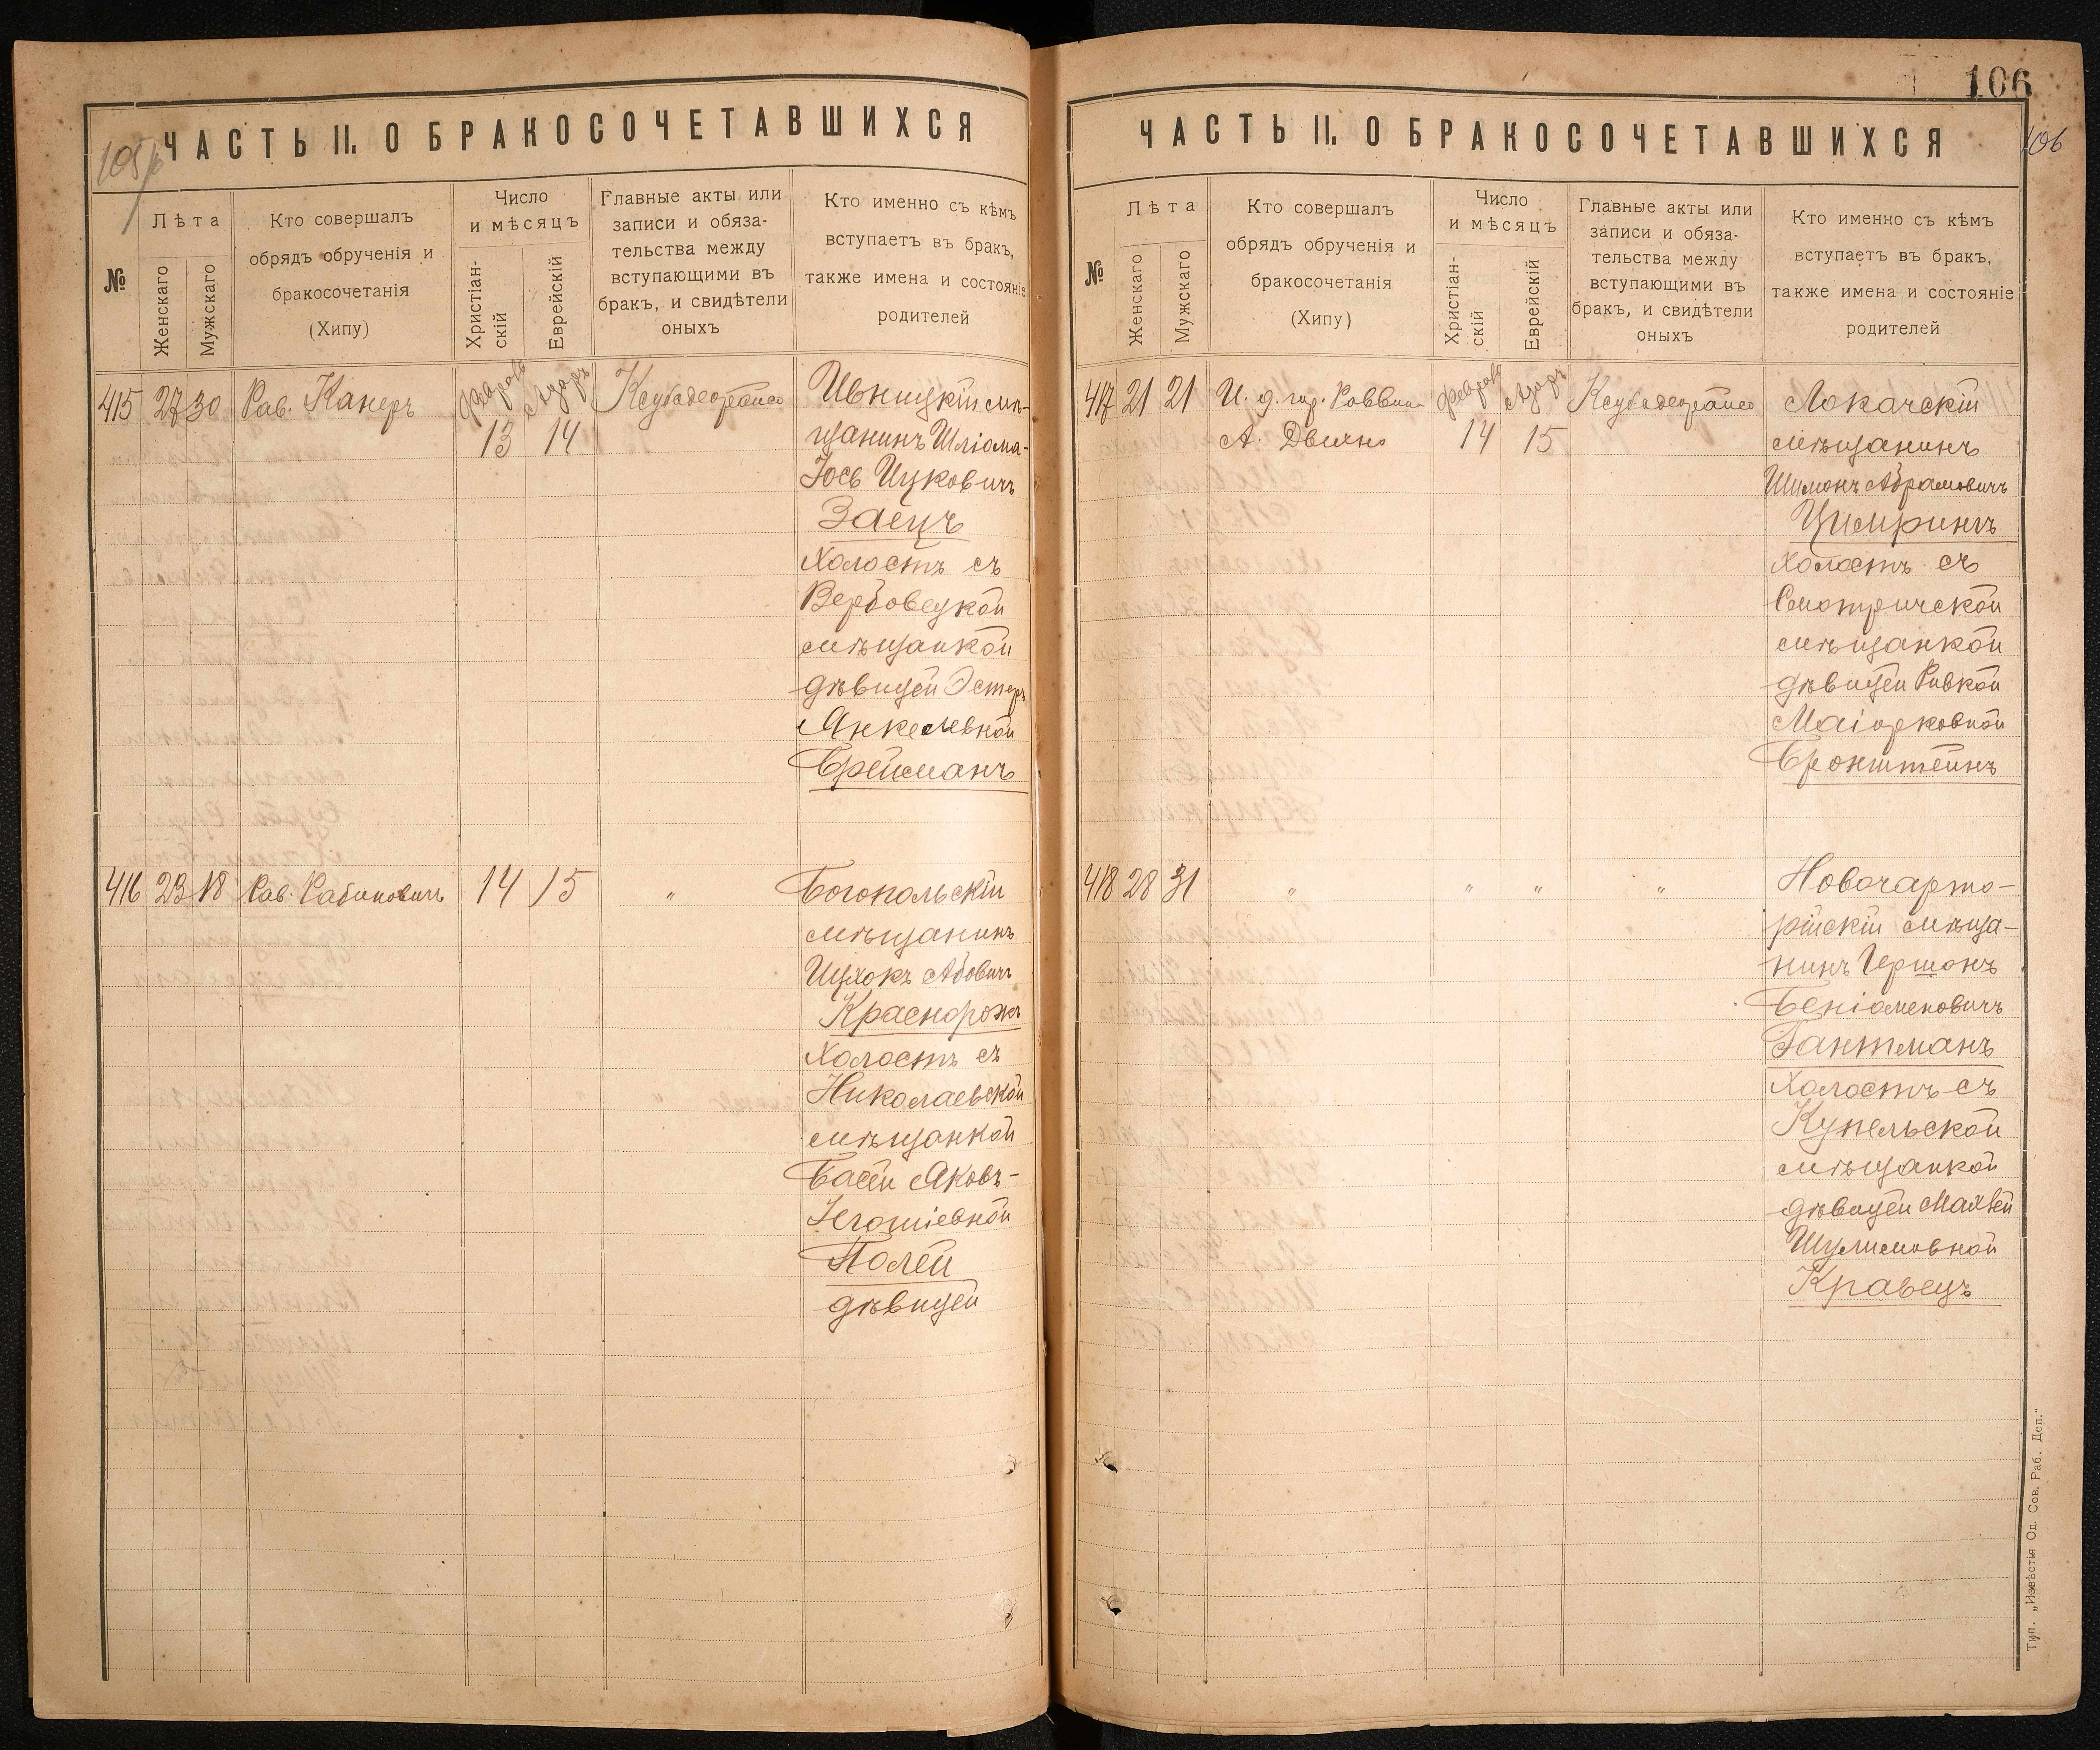 ЧАСТЬ II. О БРАКОСОЧЕТАВШИХСЯ
№
Лѣта
Женскаго
Мужскаго
Кто совершалъ
обрядъ обрученія и
бракосочетанія
(Хипу)
Число
и мѣсяцъ
Христіан-
скій
Еврейскій
Главные акты или
записи и обяза-
тельства между
вступающими въ
бракъ, и свидѣтели
оныхъ
Кто именно съ кѣмъ
вступаетъ въ бракъ,
также имена и состояніе
родителей
415 27 30 Рав. Канеръ
13 14
Ивницкій мѣ-
щанинъ Шліома-
Іось Ицковичъ
Заецъ
Холостъ съ
Вербовецкой
мѣщанкой
дѣвицей Эстеръ
Янкелевной
Брейманъ
416 23 18 Рав. Рабиновичъ 14 15 "
Богопольскій
мѣщанинъ
Ицхокъ Абовичъ
Краснорожъ
Холостъ съ
Николаевской
мѣщанкой
Басей Яковъ-
Полей
дѣвицей
106
ЧАСТЬ II. О БРАКОСОЧЕТАВШИХСЯ
106
№
Лѣта
Женскаго
Мужскаго
Кто совершалъ
обрядъ обрученія и
бракосочетанія
(Хипу)
Число
и мѣсяцъ
Христіан-
скій
Еврейскій
Главные акты или
записи и обяза-
тельства между
вступающими въ
бракъ, и свидѣтели
оныхъ
Кто именно съ кѣмъ
вступаетъ въ бракъ,
также имена и состояніе
родителей
417 21 21 И. д. гор. Раввина
14 15
Локачскій
мѣщанинъ
Шимонъ Абрамовичъ
Цимринъ
Холостъ съ
Смотричской
мѣщанкой
дѣвицей Ривкой
Маіорковной
Бронштейнъ
418 28 31 " " " "
Новочарто-
рійскій мѣща-
нинъ Гершонъ
Беніаменовичъ
Гантманъ
Холостъ съ
Купельской
мѣщанкой
дѣвицей Малкей
Шулимовной
Кравецъ
Тип. „Извѣстія Од. Сов. Раб. Деп."